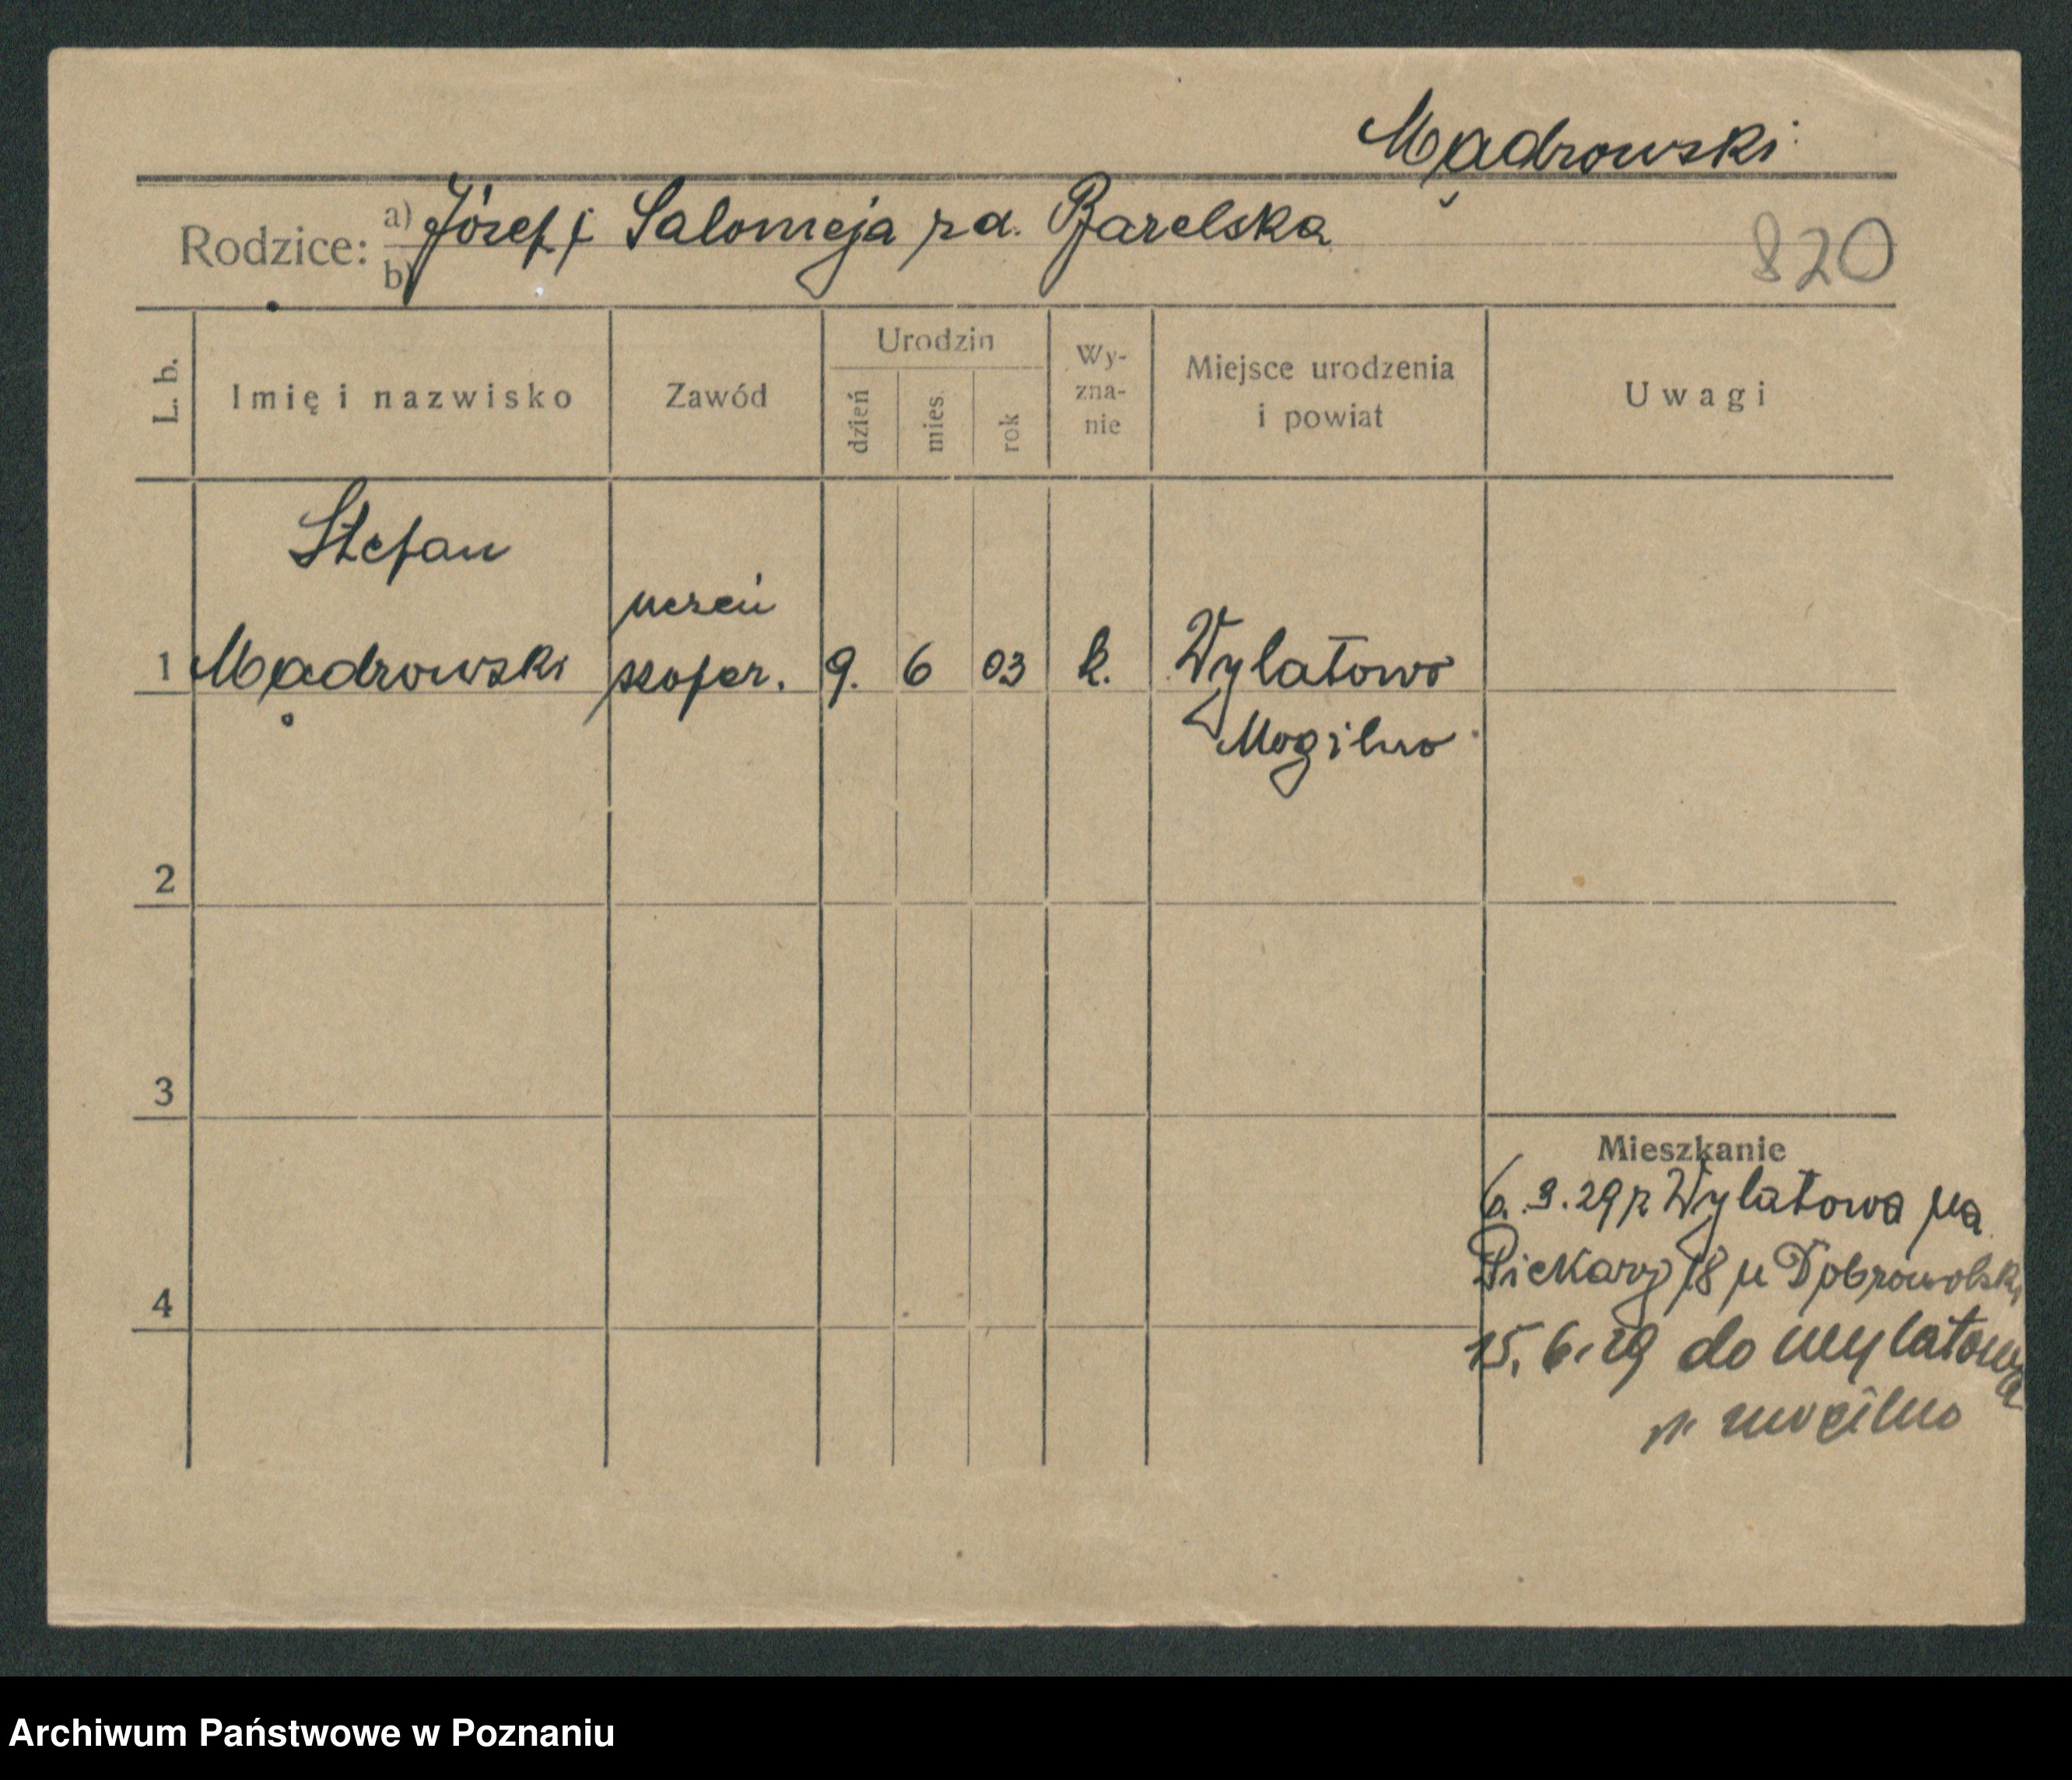 Mądrowski
Rodzice: a) Józef i Salomeja zd. Barelska
b)
820
L. b.
Imię i nazwisko
Zawód
Urodzin
dzień
mies.
rok
Wy-
zna-
nie
Miejsce urodzenia
i powiat
Uwagi
Stefan
uczeń
1 Mądrowski szofer. 9. 6 03 k. Wylatowo
Mogilno
2
3
Mieszkanie
6. 3. 29 z Wylatowa na
Piekary 18 u Dobrowolski
4
15. 6. 29 do Wylatowa
p. mogilno
Archiwum Państwowe w Poznaniu